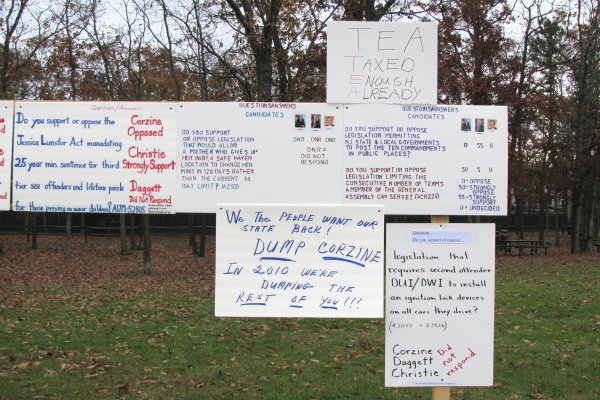 TEA
TAXED
ENOUGH
ALREADY
Question/Answers
Do you support or oppose the
Jessica Lunsfor Act manadating
25 year min. sentence for third
tier sex offenders and lifetime parole
for those preying on our children?
Corzine
Opposed
Christie
Strongly Support
Daggett
Did Not Respond
QUESTIONS ANSWERS
CANDIDATES
DO YOU SUPPORT
OR OPPOSE LEGISLATION
THAT WOULD ALLOW
A MOTHER WHO GIVES UP
HER BABY A SAFE HAVEN
LOCATION TO CHANGE HER
MIND IN 120 DAYS RATHER
THAN THE CURRENT 30
DAY LIMIT?
DNR DNR DNR
DNR=
DID NOT
RESPOND
QUESTIONS ANSWERS
CANDIDATES
DO YOU SUPPORT OR OPPOSE
LEGISLATION PERMITTING
NJ STATE & LOCAL GOVERNMENTS
TO POST THE TEN COMMANDMENTS
IN PUBLIC PLACES?
O SS U
DO YOU SUPPORT OR OPPOSE
LEGISLATION LIMITING THE
CONSECUTIVE NUMBER OF TERMS
A MEMBER OF THE GENERAL
ASSEMBLY CAN SERVE?
SO S U
O=OPPOSE
SO=STRONGLY
OPPOSE
SS=STRONGLY
SUPPORT
U=UNDECIDED
WE THE PEOPLE WANT OUR
STATE BACK!
DUMP CORZINE
IN 2010 WE'RE
DUMPING THE
REST OF YOU!!!
Question:
Do you support or oppose
legislation that
requires second offender
DUI/DWI to install
an ignition lock devices
on all cars they drive?
Corzine
Daggett
Christie
Did
not
respond